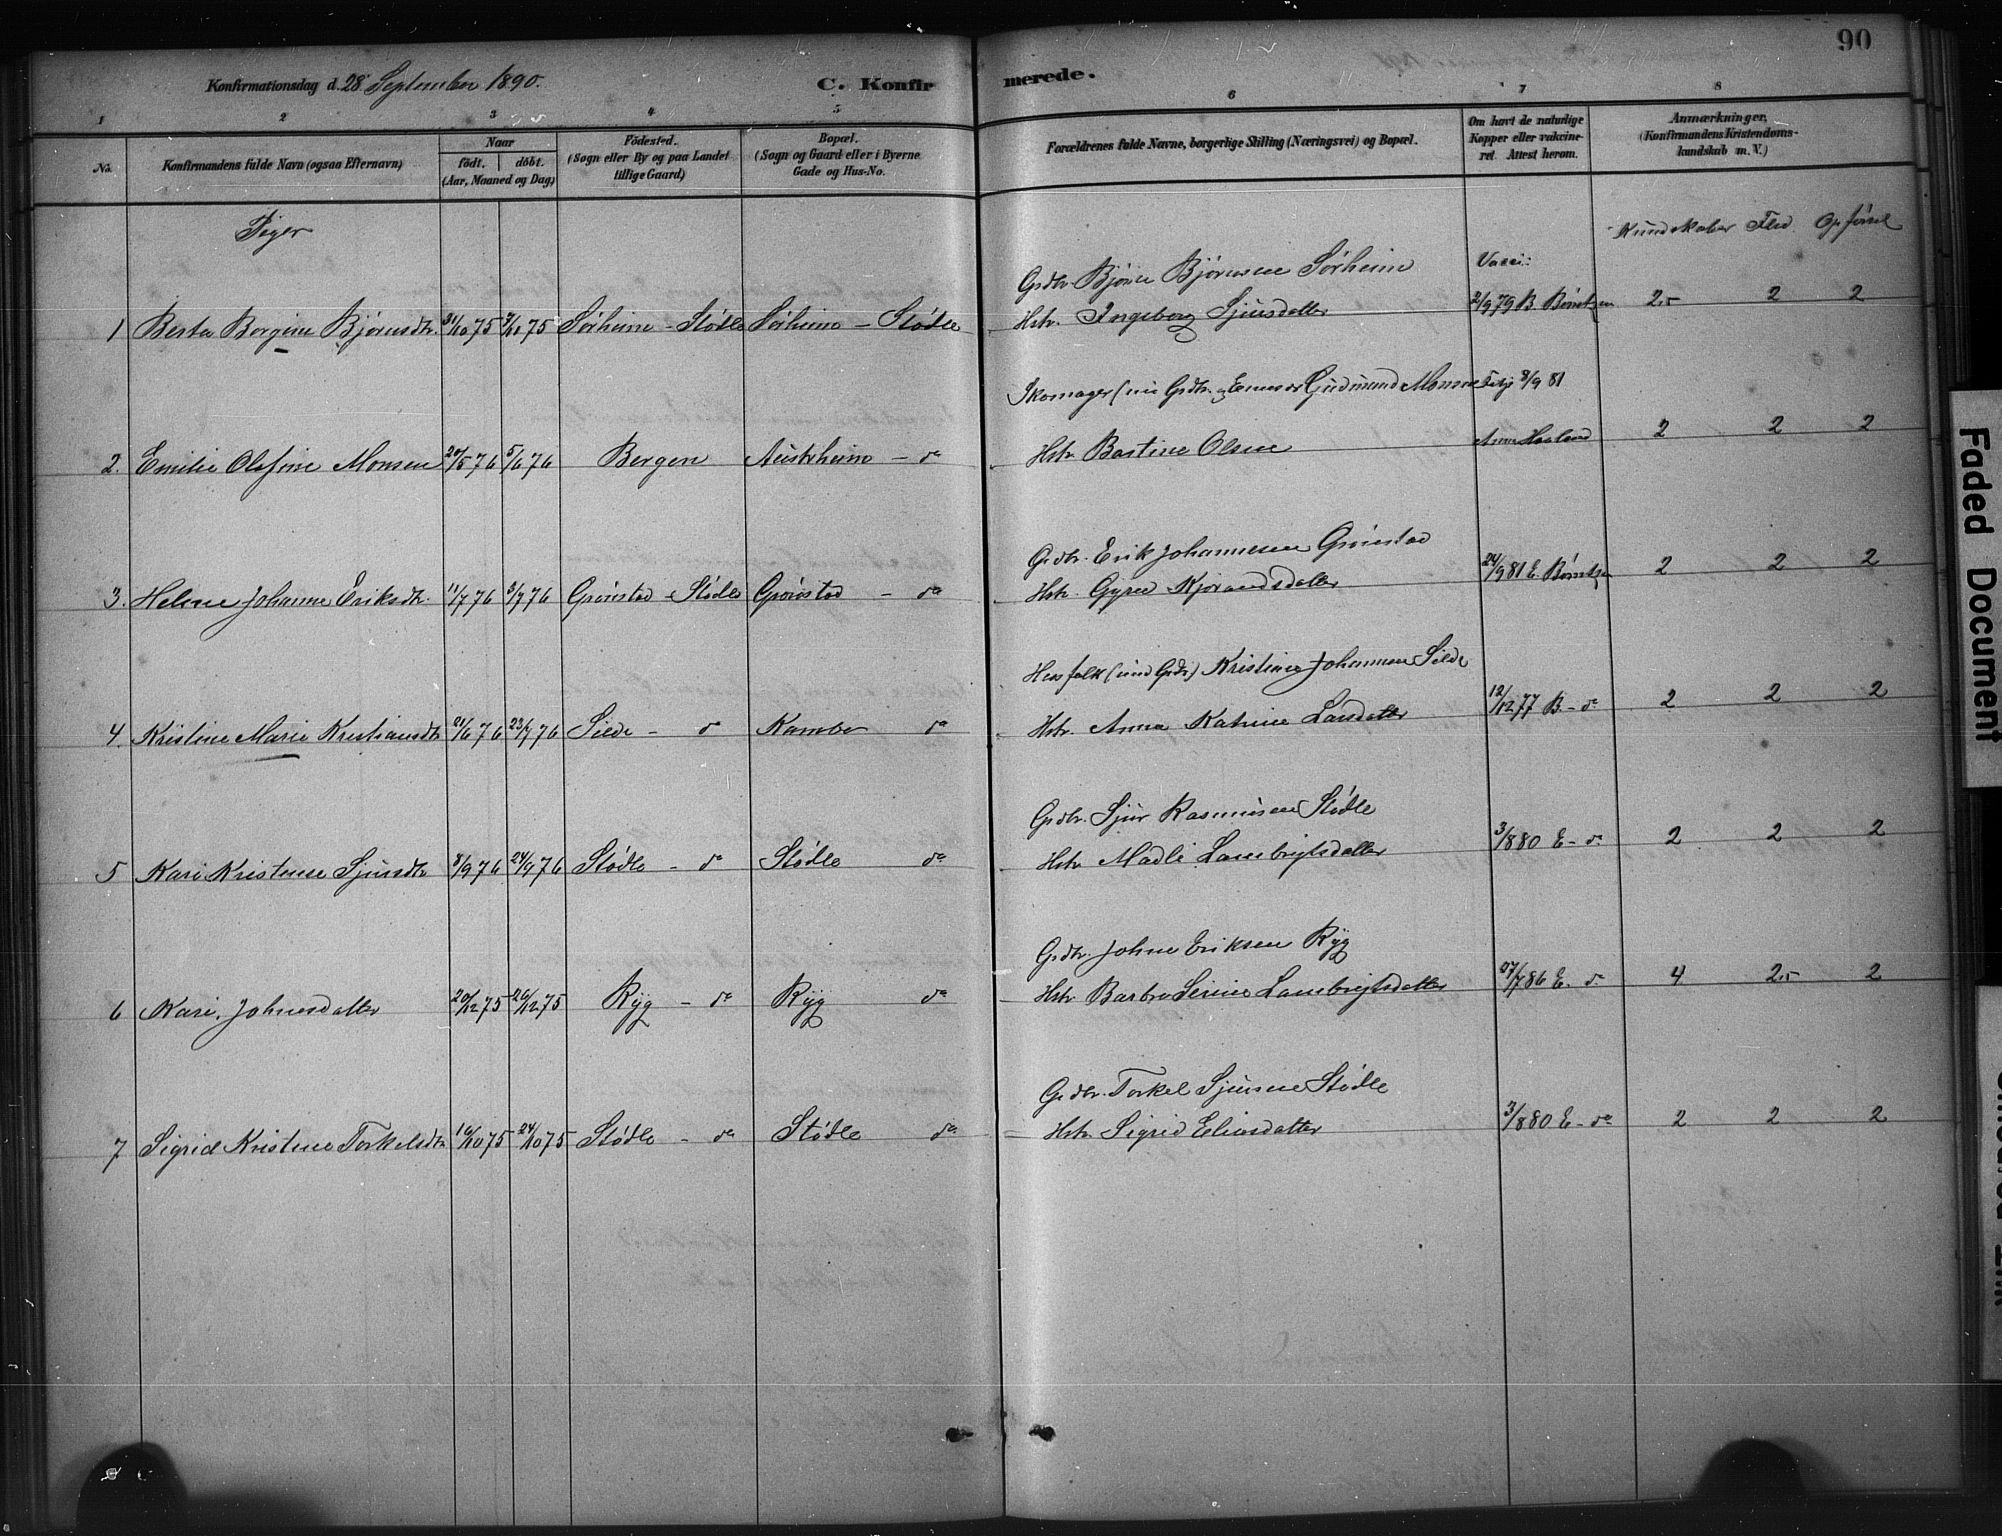 90
Konfirmationsdag d. 28 September 1890.
C. Konfirmerede.
1 2 3 4 5 6 7 8
No. Konfirmandens fulde Navn (ogsaa Efternavn) Naar født. døbt. (Aar, Maaned og Dag) Fødested. (Sogn eller By og paa Landet tillige Gaard) Bopæl. (Sogn og Gaard eller i Byerne Gade og Hus-No. Forældrenes fulde Navne, borgerlige Stilling (Næringsvei) og Bopæl. Om havt de naturlige Kopper eller vaksineret. Attest herom. Anmærkninger. (Konfirmandens Kristendomskundskab m. V.)
Piger
Kundskaber Flid Opførsel
Grdbr. Bjørn Bjørnsen Sørheim Vacci:
1 Berta Bergine Bjørnsdtr. 31/10 75 75 Sørheim - Stødle Sørheim - Stødle Hstr. Ingeborg Sjursdatter 2/9 79 B. Børretzen 2.- 2 2
Skomager Gudmund Monsen 8/9 81
2. Emilie Olafine Monsen 20/5 76 5/6 76 Bergen Austrheim - do Hstr. Bastine Olsen Anna Haaland 2 2 2
Grdbr. Erik Johannesen Grønstad
3. Helene Johanne Eriksdtr. 11/7 76 76 Grønstad - Stødle Grønstad - do Hstr. Gyrid Kjørandsdatter 24/9 81 E. Børretzen 2 2 2
Husfolk Johannesen Silde
4. Kristine Marie Kristiansdtr 21/6 76 23/7 76 Silde - do Kambe do Hstr. Anna Katrine Larsdatter 12/12 77 B - do 2 2 2
Grdbr. Sjur Rasmussen Stødle
5 Kari Kristense Sjursdtr 8/9 76 24/9 76 Stødle - do Stødle do Hstr Madli Lambrigtsdatter 3/8 80 E - do 2 2 2
Grdbr. Johne Eriksen Ryg
6 Kari Johnesdatter 20/12 75 26/12 75 Ryg - do Ryg do Hstr Barbro Serine Lambrigtsdatter 27/7 86 E. do 4 2.- 2
Grdbr. Torkel Sjursen Stødle
7 Sigrid Kristine Torkelsdtr 10/10 75 24/10 75 Stødle - do Stødle do Hstr. Sigrid Eliasdatter 3/8 80 E - do 2 2 2
Faded Document